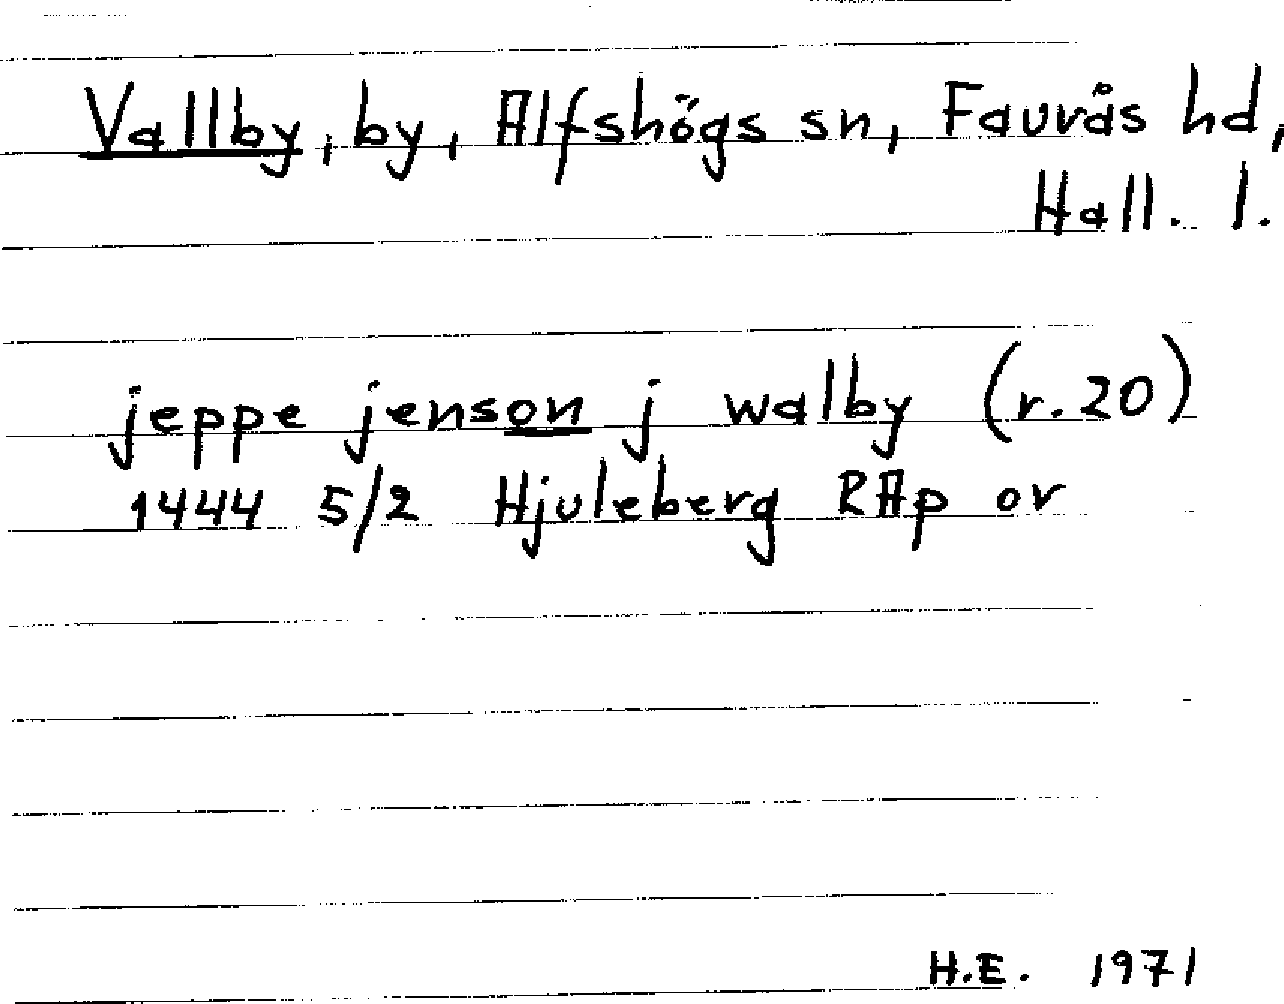 Vallby, by, Alfshögs sn, Faurås hd,
Hall. l.
jeppe jenson j walby (r. 20)
1444 5/2 Hjuleberg RAp or
H.E. 1971